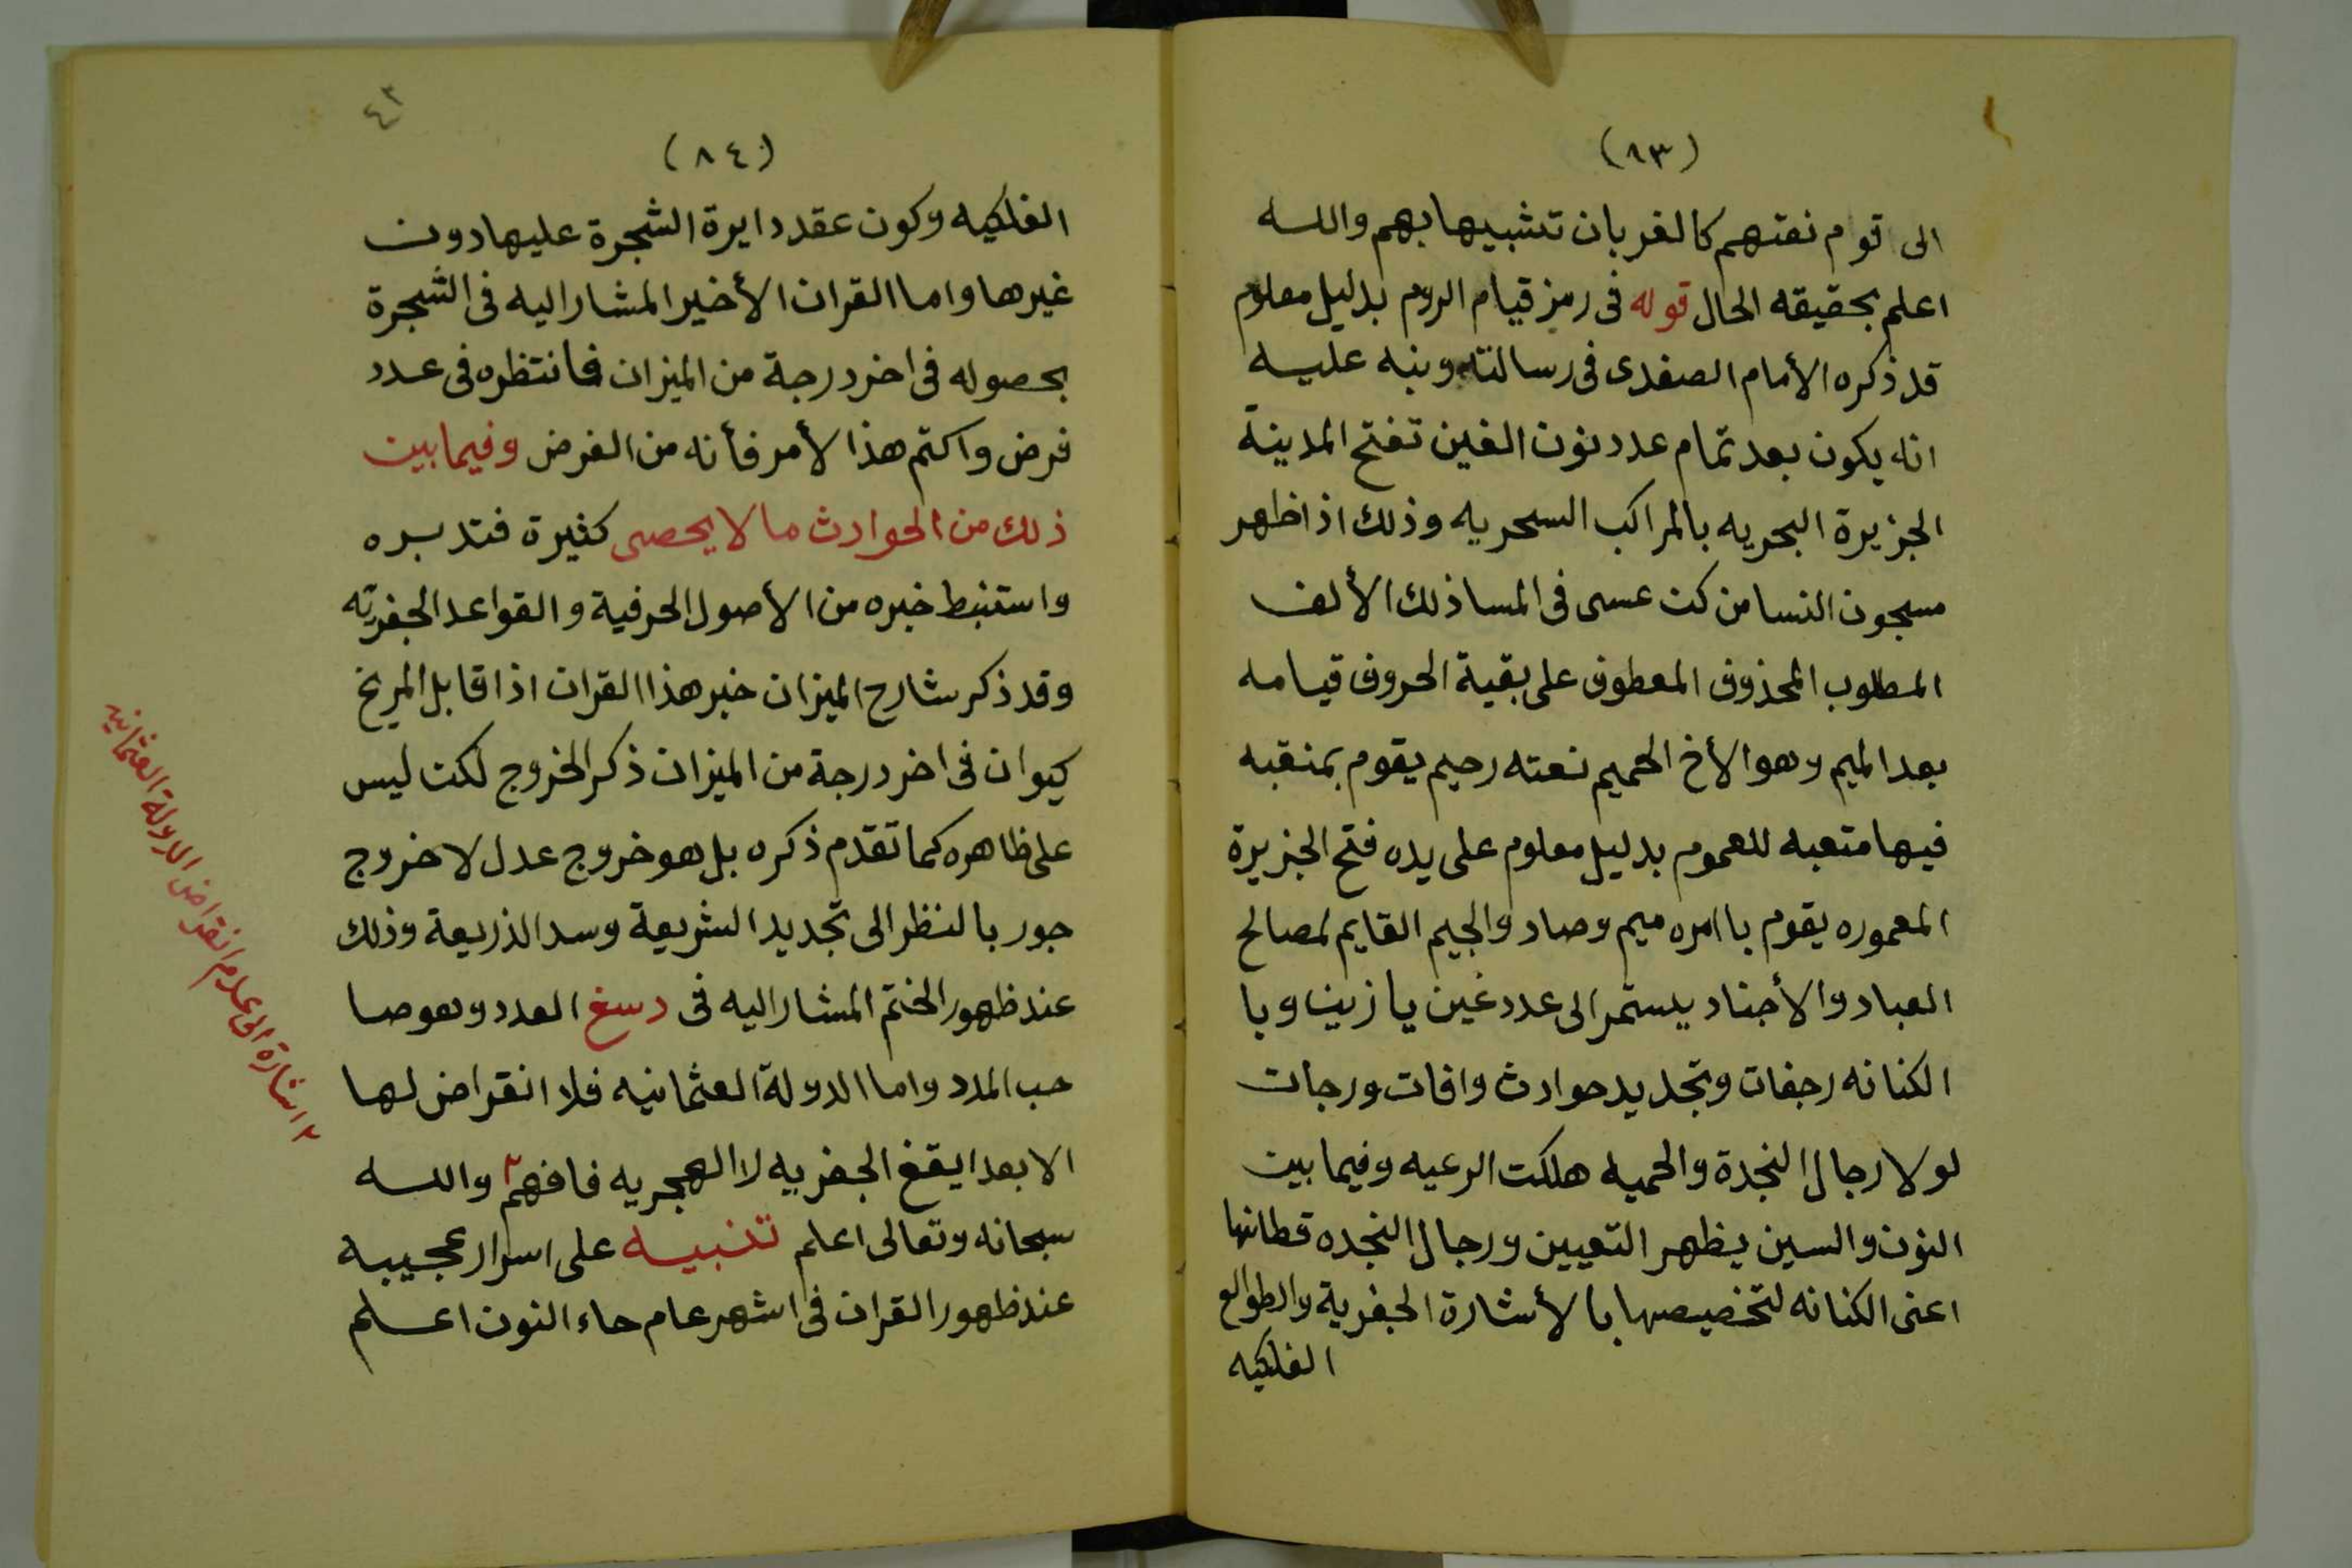 (٨٣)
الى قوم نعتهم كالغربان تشبيها بهم والله
اعلم بحقيقه الحال قوله فى رمز قيام الروم بدليل معلوم
قد ذكره الأمام الصفدى فى رسالته ونبه عليه
انه يكون بعد تمام عدد نون الغين تفتح المدينة
الجزيرة البحريه بالمراكب السحريه وذلك اذا ظهر
مسجون النسا من كن عسى فى المسا ذلك الألف
المطلوب المحذوف المعطوف على بقية الحروف قيامه
بعد الميم وهو الأخ الحميم نعته رحيم يقوم بمنقبه
فيها متعبه للعموم بدليل معلوم على يده فتح الجزيرة
المعموره يقوم باامره ميم وصاد والجيم القايم لمصالح
العباد والأجناد يستمر الى عدد غين يا زين وبا
الكنانه رجفات وتجديد حوادث وافات ورجات
لولا رجال النجدة والحميه هلكت الرعيه وفيما بين
النون والسين يظهر التعيين ورجال النجده قطانها
اعنى الكنانه لتخصيصها بالأشارة الجفرية والطوالع
الفلكيه
٤٣
(٨٤)
الفلكيه وكون عقد دايرة الشجرة عليها دون
غيرها واما القران الأخير المشار اليه فى الشجرة
بحصوله فى اخر درجة من الميزان فانتظره فى عدد
فرض واكتم هذا لأمر فأنه من الفرض وفيما بين
ذلك من الحوادث ما لا يحصى كثيرة فتدبره
واستنبط خبره من الأصول الحرفية والقواعد الجفريّه
وقد ذكر شارح الميزان خبر هذا القران اذا قابل المريخ
كيوان فى اخر درجة من الميزان ذكر الخروج لكن ليس
على ظاهره كما تقدم ذكره بل هو خروج عدل لا خروج
جور بالنظر الى تجديد الشريعة وسد الذريعة وذلك
عند ظهور الختم المشار اليه فى دسغ العدد وهو صا
حب المدد واما الدولة العثمانيه فلا انقراض لها
الا بعد ايقغ الجفريه لا الهجريه فافهم٢ والله
سبحانه وتعالى اعلم تنبيه على اسرار عجيبه
عند ظهور القران فى اشهر عام حاء النون اعلم
٢ اشارة الى عدم انقراض الدولة العثمانيه